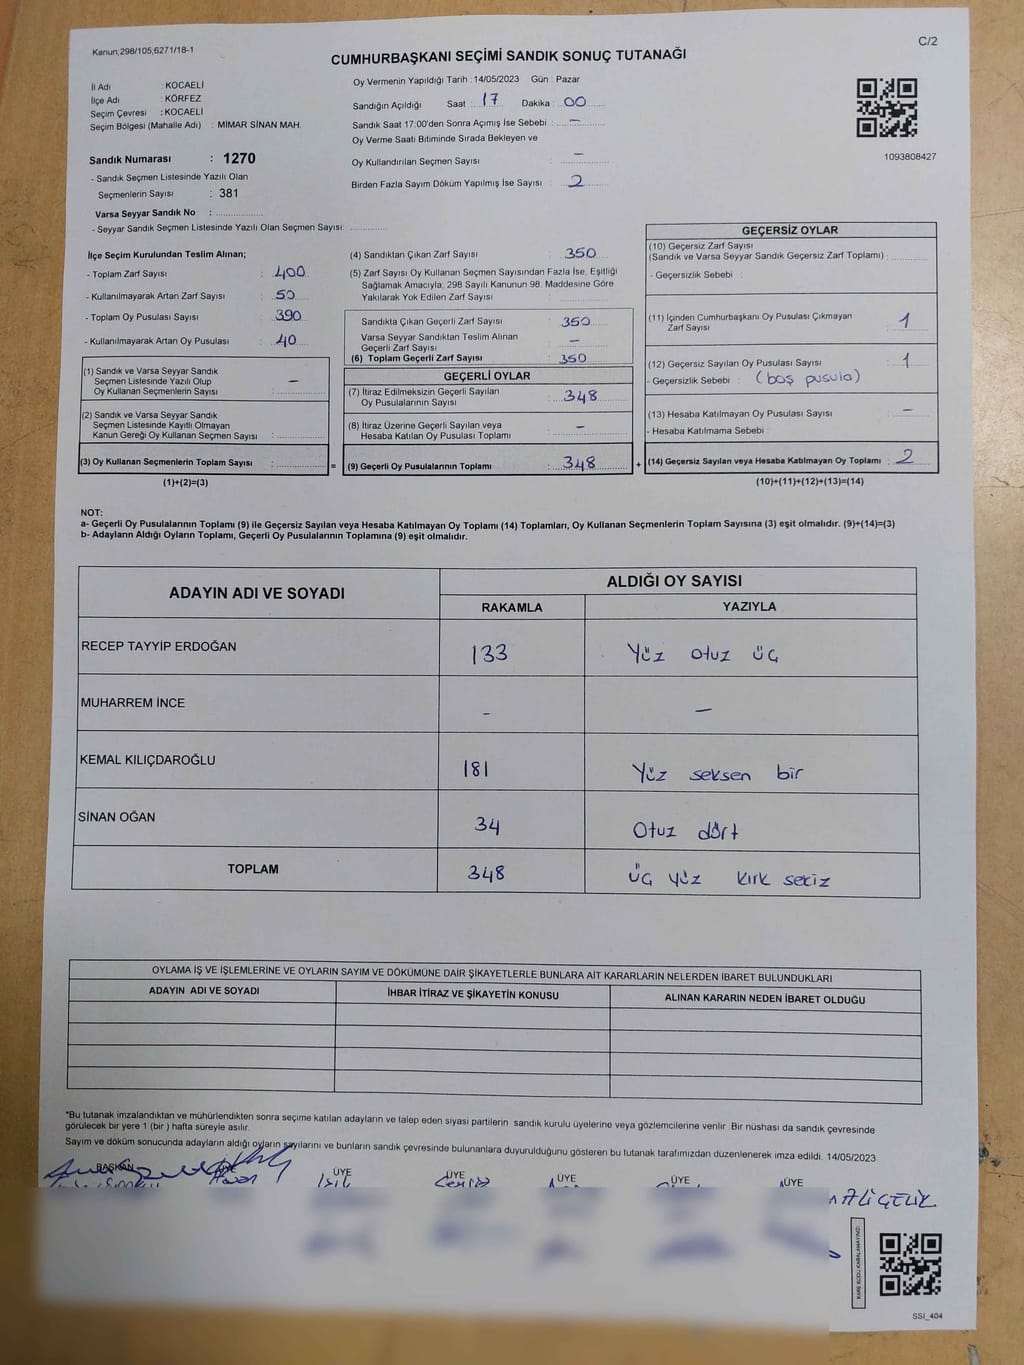 Kanun,298/105,6271/18-1
C/2
CUMHURBAŞKANI SEÇİMİ SANDIK SONUÇ TUTANAĞI
İl Adı : KOCAELİ
İlçe Adı : KÖRFEZ
Seçim Çevresi : KOCAELİ
Seçim Bölgesi (Mahalle Adı) : MİMAR SİNAN MAH.
Sandık Numarası : 1270
- Sandık Seçmen Listesinde Yazılı Olan
Seçmenlerin Sayısı : 381
Varsa Seyyar Sandık No :
- Seyyar Sandık Seçmen Listesinde Yazılı Olan Seçmen Sayısı:
Oy Vermenin Yapıldığı Tarih : 14/05/2023 Gün : Pazar
Sandığın Açıldığı Saat : 17 Dakika : 00
Sandık Saat 17:00'den Sonra Açımış İse Sebebi : —
Oy Verme Saati Bitiminde Sırada Bekleyen ve
Oy Kullandırılan Seçmen Sayısı : —
Birden Fazla Sayım Döküm Yapılmış İse Sayısı : 2
1093808427
İlçe Seçim Kurulundan Teslim Alınan;
- Toplam Zarf Sayısı : 400
- Kullanılmayarak Artan Zarf Sayısı : 50
- Toplam Oy Pusulası Sayısı : 390
- Kullanılmayarak Artan Oy Pusulası : 40
(1) Sandık ve Varsa Seyyar Sandık
Seçmen Listesinde Yazılı Olup
Oy Kullanan Seçmenlerin Sayısı : —
(2) Sandık ve Varsa Seyyar Sandık
Seçmen Listesinde Kayıtlı Olmayan
Kanun Gereği Oy Kullanan Seçmen Sayısı :
(3) Oy Kullanan Seçmenlerin Toplam Sayısı : =
(1)+(2)=(3)
(4) Sandıktan Çıkan Zarf Sayısı : 350
(5) Zarf Sayısı Oy Kullanan Seçmen Sayısından Fazla İse, Eşitliği
Sağlamak Amacıyla; 298 Sayılı Kanunun 98. Maddesine Göre
Yakılarak Yok Edilen Zarf Sayısı :
Sandıkta Çıkan Geçerli Zarf Sayısı : 350
Varsa Seyyar Sandıktan Teslim Alınan
Geçerli Zarf Sayısı : —
(6) Toplam Geçerli Zarf Sayısı : 350
GEÇERLİ OYLAR
(7) İtiraz Edilmeksizin Geçerli Sayılan
Oy Pusulalarının Sayısı : 348
(8) İtiraz Üzerine Geçerli Sayılan veya
Hesaba Katılan Oy Pusulası Toplamı : —
(9) Geçerli Oy Pusulalarının Toplamı : 348 +
GEÇERSİZ OYLAR
(10) Geçersiz Zarf Sayısı
(Sandık ve Varsa Seyyar Sandık Geçersiz Zarf Toplamı) :
- Geçersizlik Sebebi :
(11) İçinden Cumhurbaşkanı Oy Pusulası Çıkmayan
Zarf Sayısı : 1
(12) Geçersiz Sayılan Oy Pusulası Sayısı : 1
- Geçersizlik Sebebi : (boş pusula)
(13) Hesaba Katılmayan Oy Pusulası Sayısı : —
- Hesaba Katılmama Sebebi :
(14) Geçersiz Sayılan veya Hesaba Katılmayan Oy Toplamı : 2
(10)+(11)+(12)+(13)=(14)
NOT:
a- Geçerli Oy Pusulalarının Toplamı (9) ile Geçersiz Sayılan veya Hesaba Katılmayan Oy Toplamı (14) Toplamları, Oy Kullanan Seçmenlerin Toplam Sayısına (3) eşit olmalıdır. (9)+(14)=(3)
b- Adayların Aldığı Oyların Toplamı, Geçerli Oy Pusulalarının Toplamına (9) eşit olmalıdır.
ADAYIN ADI VE SOYADI
ALDIĞI OY SAYISI
RAKAMLA YAZIYLA
RECEP TAYYİP ERDOĞAN 133 Yüz otuz üç
MUHARREM İNCE - —
KEMAL KILIÇDAROĞLU 181 Yüz seksen bir
SİNAN OĞAN 34 Otuz dört
TOPLAM 348 üç yüz kırk sekiz
OYLAMA İŞ VE İŞLEMLERİNE VE OYLARIN SAYIM VE DÖKÜMÜNE DAİR ŞİKAYETLERLE BUNLARA AİT KARARLARIN NELERDEN İBARET BULUNDUKLARI
ADAYIN ADI VE SOYADI İHBAR İTİRAZ VE ŞİKAYETİN KONUSU ALINAN KARARIN NEDEN İBARET OLDUĞU
*Bu tutanak imzalandıktan ve mühürlendikten sonra seçime katılan adayların ve talep eden siyasi partilerin sandık kurulu üyelerine veya gözlemcilerine verilir. Bir nüshası da sandık çevresinde
görülecek bir yere 1 (bir ) hafta süreyle asılır.
Sayım ve döküm sonucunda adayların aldığı oyların sayılarını ve bunların sandık çevresinde bulunanlara duyurulduğunu gösteren bu tutanak tarafımızdan düzenlenerek imza edildi. 14/05/2023
BAŞKAN ÜYE ÜYE ÜYE ÜYE ÜYE
ALİ ÇELİK
KARE KODU KARALAMAYINIZ!
SSI_404